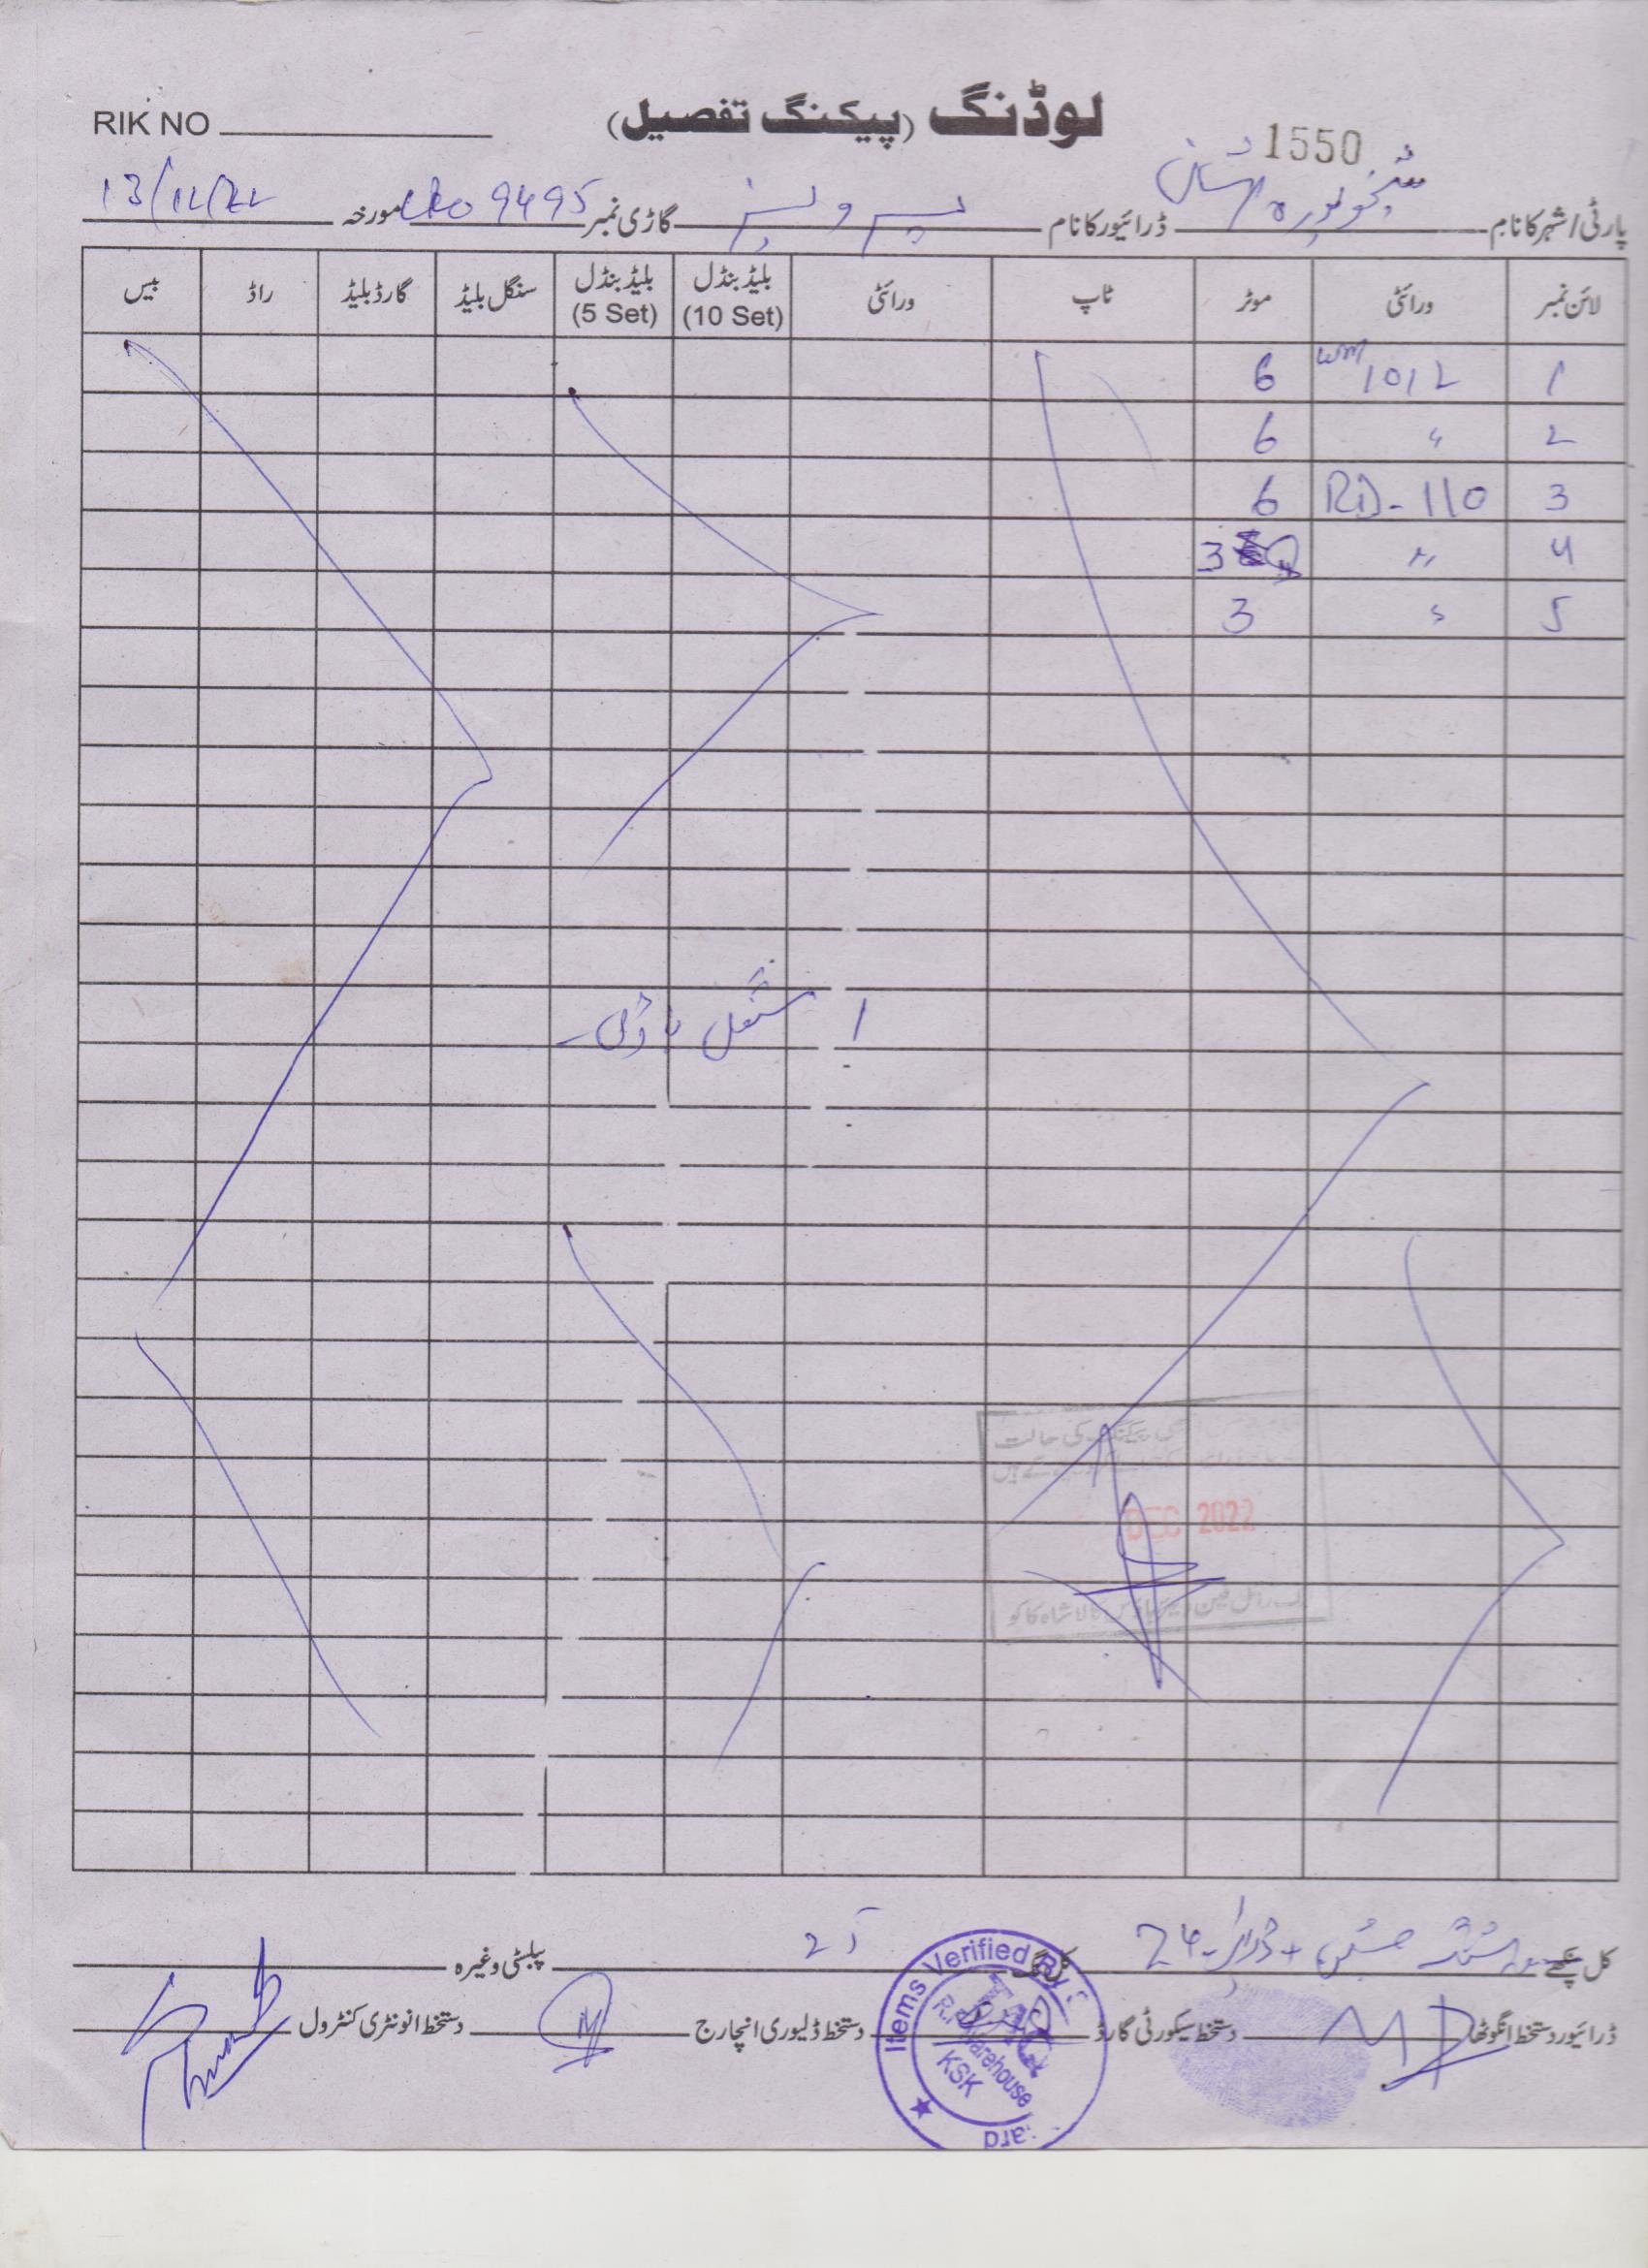 RIK NO
لوڈنگ (پیکنگ تفصیل)
1550
پارٹی/شہر کا نام شیخوپورہ ڈرائیور کا نام پرویز گاڑی نمبر 9495 مورخہ 13/12/22
لائن نمبر ورائٹی موٹر ٹاپ ورائٹی بلیڈ بنڈل (10 Set) بلیڈ بنڈل (5 Set) سنگل بلیڈ گارڈ بلیڈ راڈ بیس
1 WM 1012 6
2 〃 6
3 RD-110 6
4 〃 3
5 〃 3
1 سنگل باڈی
پیکنگ کی حالت
DEC 2022
کالا شاہ کاکو
کل پنکھے 24
پبلسٹی وغیرہ
ڈرائیور دستخط انگوٹھا دستخط سیکورٹی گارڈ دستخط ڈلیوری انچارج دستخط انونٹری کنٹرول
Items Verified By
Warehouse
KSK